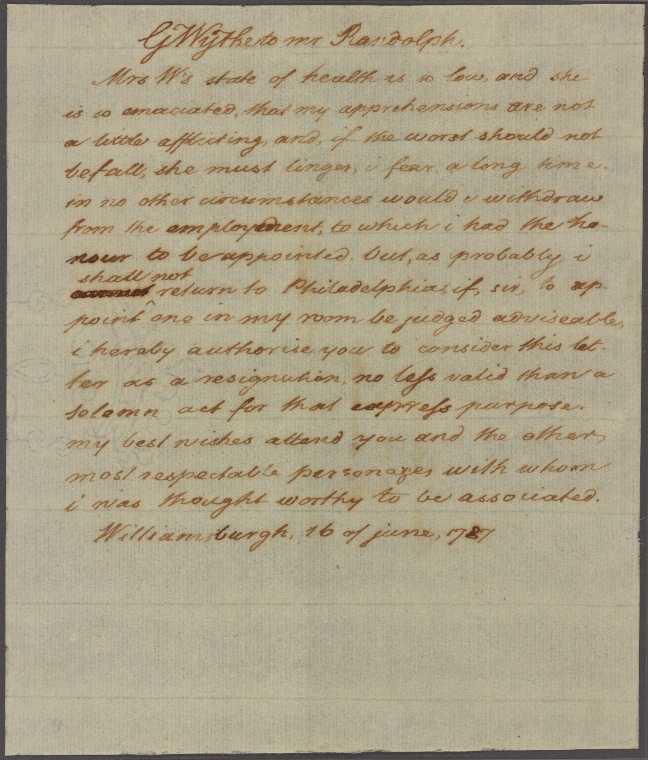 G Wythe to mr Randolph.
Mrs W's state of health is so low, and she
is so emaciated, that my apprehensions are not
a little afflicting, and, if the worst should not
befall, she must linger, i fear, a long time.
in no other circumstances would i withdraw
from the employment, to which i had the ho-
nour to be appointed. but, as probably i
shall not
return to Philadelphia, if, sir, to ap-
point one in my room be judged adviseable,
i hereby authorise you to consider this let-
ter as a resignation, no less valid than a
solemn act for that express purpose.
my best wishes attend you and the other,
most respectable personages, with whom
i was thought worthy to be associated.
Williamsburgh, 16 of june, 1787